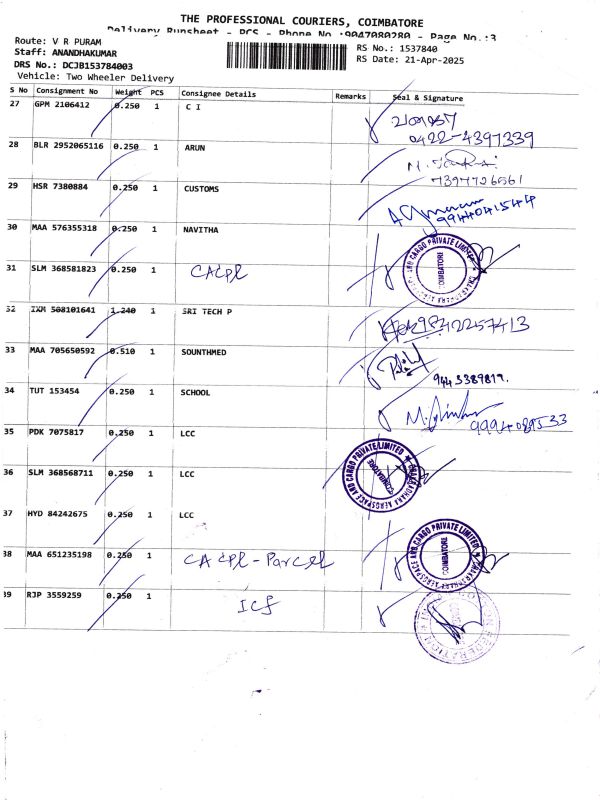 THE PROFESSIONAL COURIERS, COIMBATORE
Delivery Runsheet - PCS - Phone No :9047080280 - Page No.:3
Route: V R PURAM
Staff: ANANDHAKUMAR
DRS No.: DCJB153784003
Vehicle: Two Wheeler Delivery
RS No.: 1537840
RS Date: 21-Apr-2025
S No Consignment No Weight PCS Consignee Details Remarks Seal & Signature
27 GPM 2106412 0.250 1 C I
0422-4397339
28 BLR 2952065116 0.250 1 ARUN
7397726561
29 HSR 7380884 0.250 1 CUSTOMS
9944041544
30 MAA 576355318 0.250 1 NAVITHA
31 SLM 368581823 0.250 1 CACPL
COIMBATORE
32 IXM 508101641 1.240 1 SRI TECH P
9842257413
33 MAA 705650592 0.510 1 SOUNTHMED
9443389819.
34 TUT 153454 0.250 1 SCHOOL
9994089533
35 PDK 7075817 0.250 1 LCC
36 SLM 368568711 0.250 1 LCC
CHAKRADHARA AEROSPACE AND CARGO PRIVATE LIMITED
COIMBATORE
37 HYD 84242675 0.250 1 LCC
38 MAA 651235198 0.250 1 CACPL - Parcel
CHAKRADHARA AEROSPACE AND CARGO PRIVATE LIMITED
COIMBATORE
39 RJP 3559259 0.250 1 ICF